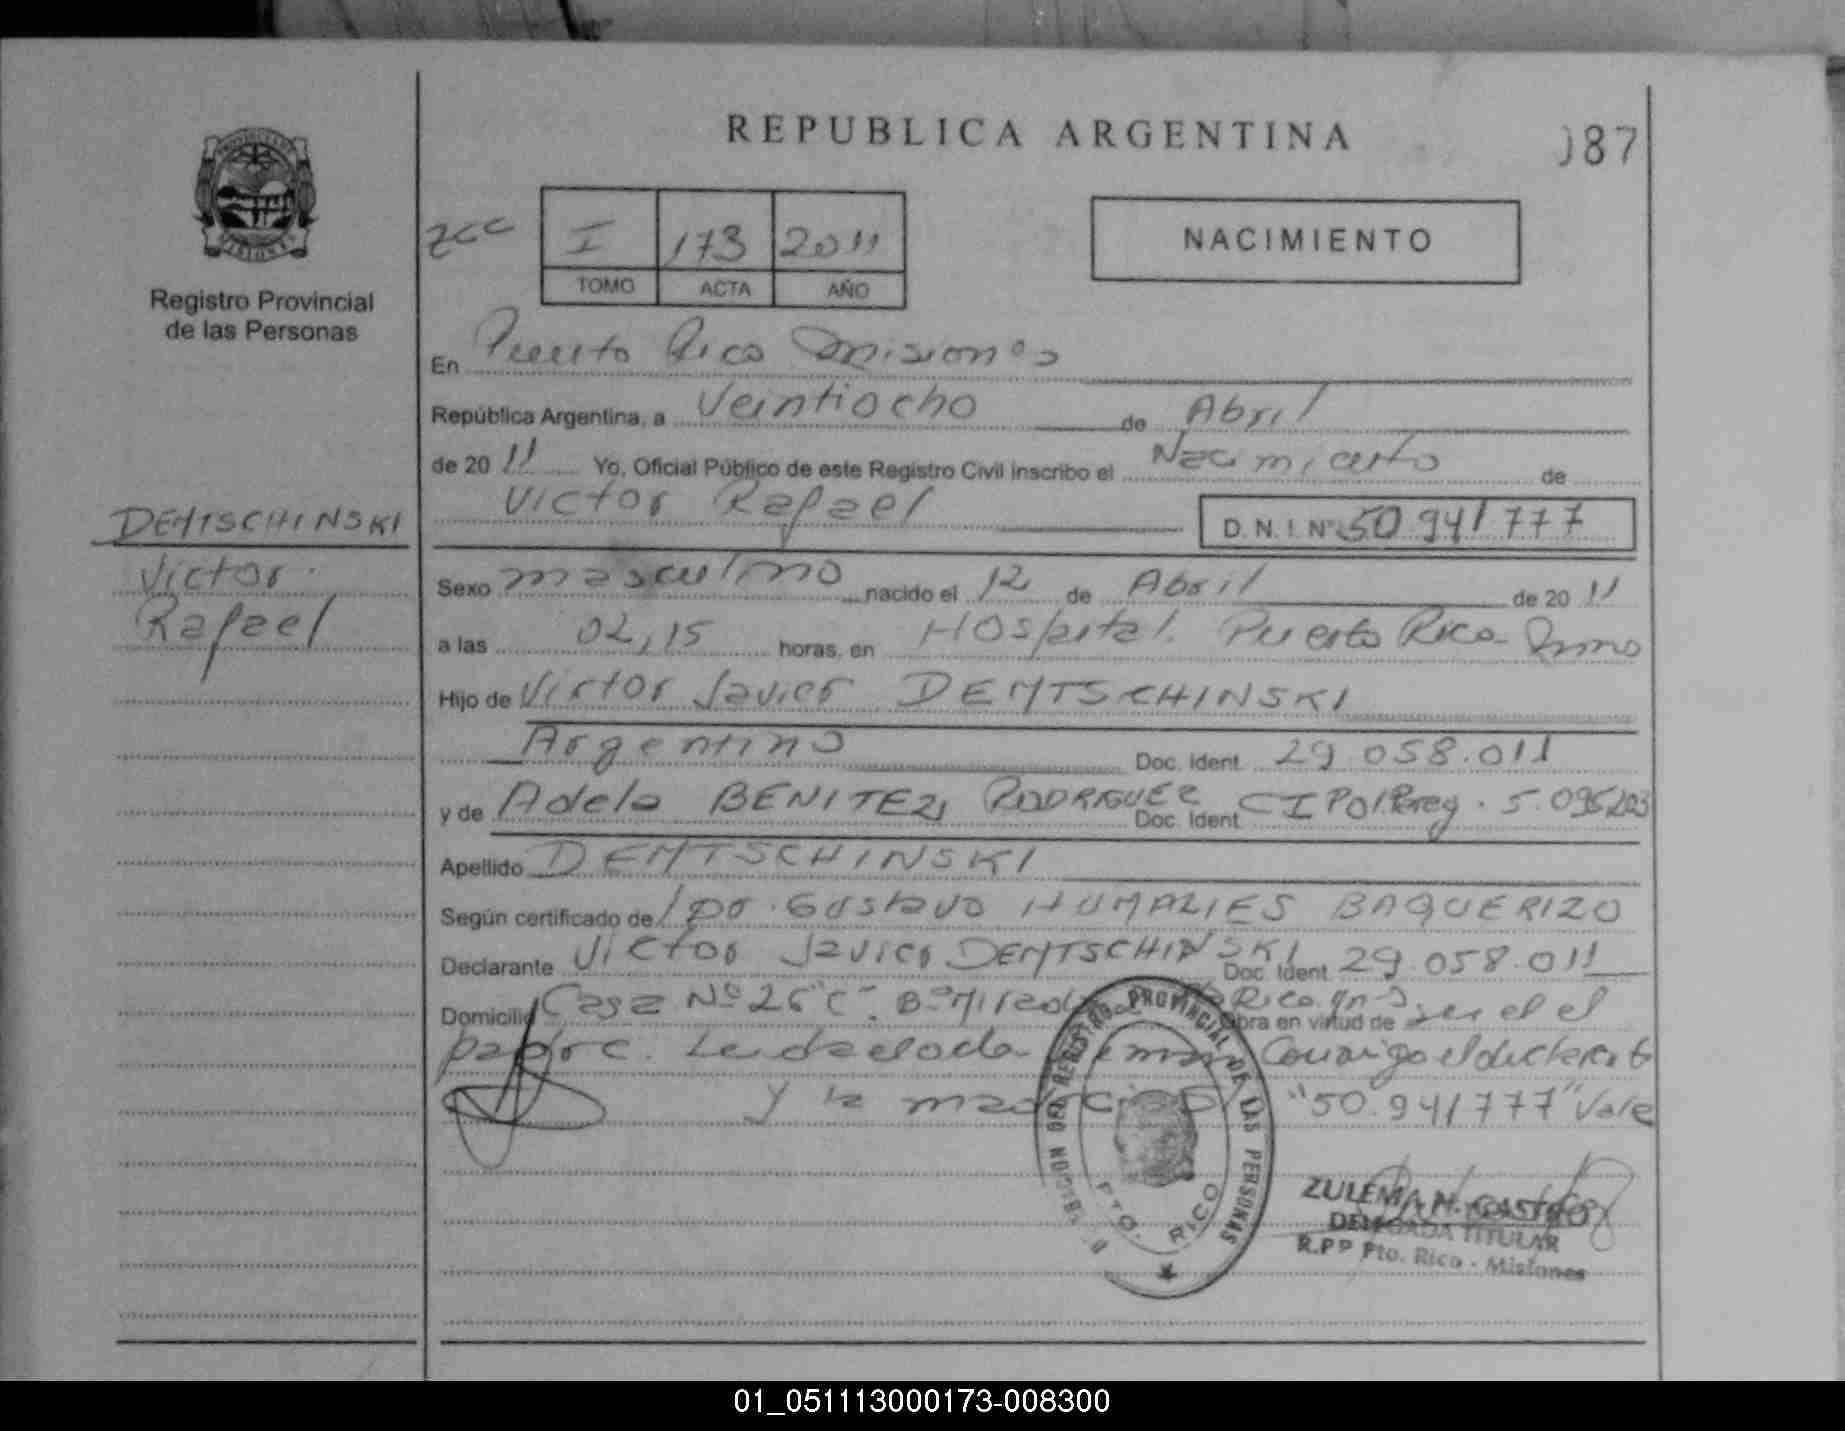 REPUBLICA ARGENTINA
087
NACIMIENTO
I 173 2011
TOMO ACTA AÑO
Registro Provincial
de las Personas
DEMTSCHINSKI
Victor
Rafael
En Puerto Rico Misiones
República Argentina, a Veintiocho de Abril
de 20 11 Yo, Oficial Público de este Registro Civil inscribo el Nacimiento de
Victor Rafael D.N.I. Nº 50.941777
Sexo masculino nacido el 12 de Abril de 20 11
a las 02,15 horas, en Hospital Puerto Rico
Hijo de Victor Javier DEMTSCHINSKI
Argentino Doc. Ident. 29.058.011
y de Adela BENITEZ, RODRIGUEZ Doc. Ident. CI Pol. Parag. 5.095203
Apellido DEMTSCHINSKI
Según certificado de Gustavo HUMALIES BAQUERIZO
Declarante Victor Javier DEMTSCHINSKI Doc. Ident. 29.058.011
Domicilio Casa Nº 26 "C" Bº Rico Obra en virtud de ser el el
padre. Leida el acta Conmigo el declarante
y la madre "50.941777" Vale
PROVINCIAL DE LAS PERSONAS
PTO. RICO
ZULEMA N. CASTRO
DELEGADA TITULAR
R.P.P Pto. Rico - Misiones
01_051113000173-008300